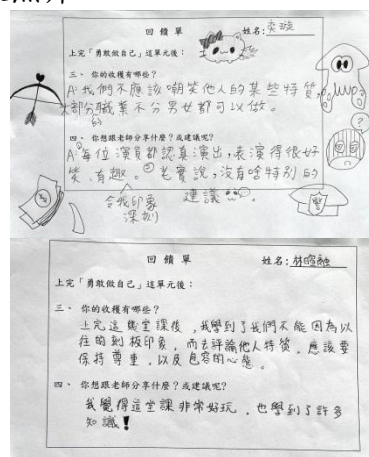 回饋單
姓名:奕璇
上完「勇敢做自己」這單元後:
三、你的收穫有哪些?
A:我們不應該嘲笑他人的某些特質,
大部分的職業不分男女都可以做。
四、你想跟老師分享什麼?或建議呢?
A:①每位演員都認真演出,表演得很好
笑、有趣。②老實說,沒有啥特別的
令我印象深刻
建議 。
回饋單
姓名:林
上完「勇敢做自己」這單元後:
三、你的收穫有哪些?
上完這幾堂課後,我學到了我們不能因為以
往的刻板印象,而去評論他人特質,應該要
保持尊重,以及包容的心態。
四、你想跟老師分享什麼?或建議呢?
我覺得這堂課非常好玩,也學到了許多
知識!